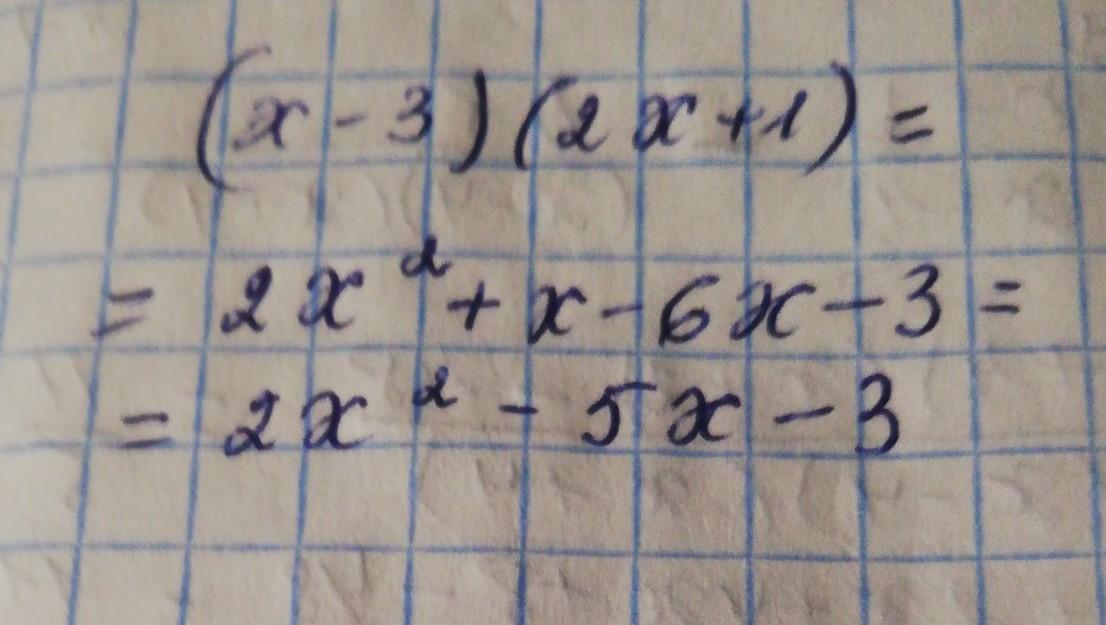 (x-3)(2x+1)=
= 2x²+x-6x-3=
= 2x²-5x-3